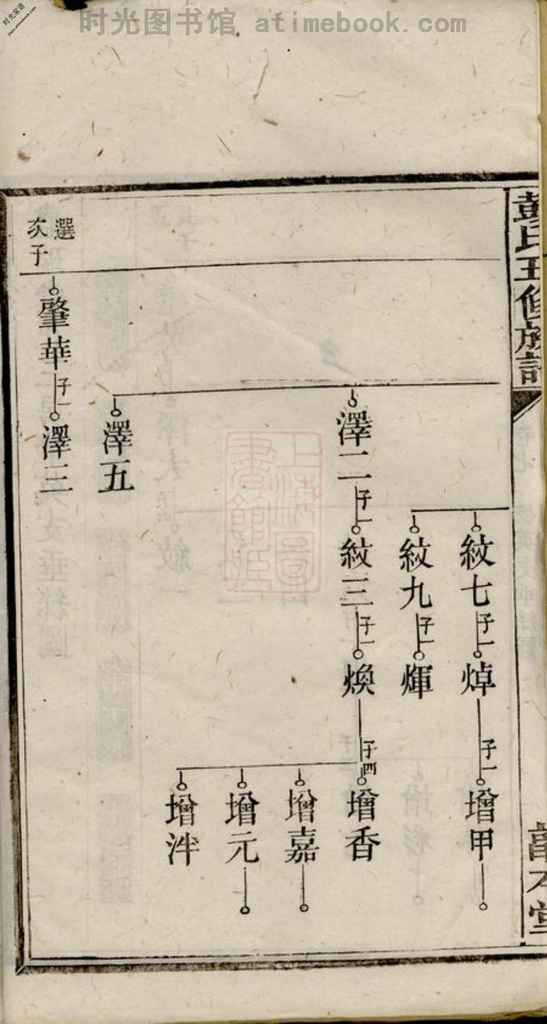 时光图书馆 atimebook.com
彭氏五修族譜
紋七
子一
焯
子一
增甲
紋九
子一
煇
澤二
子一
紋三
子一
煥
子四
增香
增嘉
增元
增泮
澤五
選
次子
肇華
子一
澤三